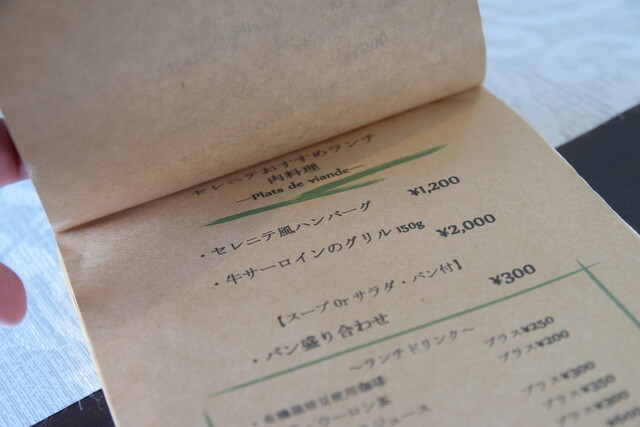 セレニテおすすめランチ
肉料理
—Plats de viande—
・セレニテ風ハンバーグ ¥1,200
・牛サーロインのグリル 150g ¥2,000
【スープ Or サラダ・パン付】
・パン盛り合わせ ¥300
〜ランチドリンク〜
・有機栽培豆使用珈琲 プラス¥250
ウーロン茶 プラス¥200
ジュース プラス¥300
プラス¥350
¥300